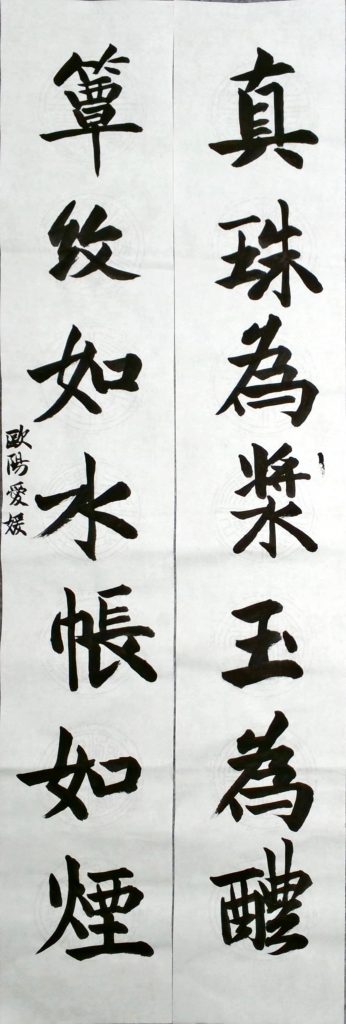 真珠為漿玉為醴
簟紋如水帳如煙
歐陽愛媛